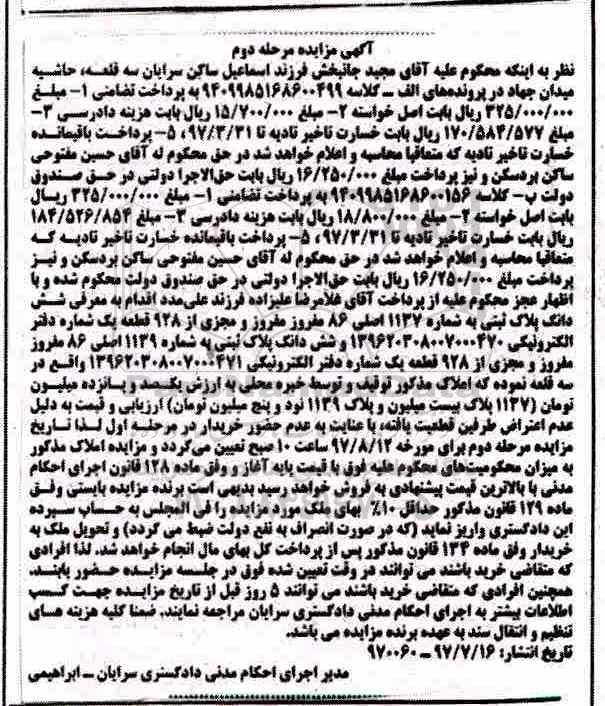 آگهی مزایده مرحله دوم
نظر به اینکه محکوم علیه آقای مجید جانبخش فرزند اسماعیل ساکن سرایان سه قلعه، حاشیه
میدان جهاد در پرونده‌های الف ــ کلاسه ۹۴۰۹۹۸۵۱۶۸۶۰۰۴۹۹ به پرداخت تضامنی ۱- مبلغ
۳۲۵/۰۰۰/۰۰۰ ریال بابت اصل خواسته ۲- مبلغ ۱۵/۷۰۰/۰۰۰ ریال بابت هزینه دادرسی ۳-
مبلغ ۱۷۰/۵۸۴/۵۷۷ ریال بابت خسارت تاخیر تادیه تا ۹۷/۳/۳۱، ۵- پرداخت باقیمانده
خسارت تاخیر تادیه که متعاقبا محاسبه و اعلام خواهد شد در حق محکوم له آقای حسین مفتوحی
ساکن بردسکن و نیز پرداخت مبلغ ۱۶/۲۵۰/۰۰۰ ریال بابت حق‌الاجرا دولتی در حق صندوق
دولت ب- کلاسه ۹۴۰۹۹۸۵۱۶۸۶۰۰۱۵۶ به پرداخت تضامنی ۱- مبلغ ۳۲۵/۰۰۰/۰۰۰ ریال
بابت اصل خواسته ۲- مبلغ ۱۸/۸۰۰/۰۰۰ ریال بابت هزینه دادرسی ۳- مبلغ ۱۸۴/۵۲۶/۸۵۴
ریال بابت خسارت تاخیر تادیه تا ۹۷/۳/۳۱، ۵- پرداخت باقیمانده خسارت تاخیر تادیه که
متعاقبا محاسبه و اعلام خواهد شد در حق محکوم له آقای حسین مفتوحی ساکن بردسکن و نیز
پرداخت مبلغ ۱۶/۲۵۰/۰۰۰ ریال بابت حق‌الاجرا دولتی در حق صندوق دولت محکوم شده و با
اظهار عجز محکوم علیه از پرداخت آقای غلامرضا علیزاده فرزند علی‌مدد اقدام به معرفی شش
دانگ پلاک ثبتی به شماره ۱۱۳۷ اصلی ۸۶ مفروز مفروز و مجزی از ۹۲۸ قطعه یک شماره دفتر
الکترونیکی ۱۳۹۶۲۰۳۰۸۰۰۷۰۰۰۴۷۰ و شش دانگ پلاک ثبتی به شماره ۱۱۳۹ اصلی ۸۶ مفروز
مفروز و مجزی از ۹۲۸ قطعه یک شماره دفتر الکترونیکی ۱۳۹۶۲۰۳۰۸۰۰۷۰۰۰۴۷۱ واقع در
سه قلعه نموده که املاک مذکور توقیف و توسط خبره محلی به ارزش یکصد و پانزده میلیون
تومان (۱۱۳۷ پلاک بیست میلیون و پلاک ۱۱۳۹ نود و پنج میلیون تومان) ارزیابی و قیمت به دلیل
عدم اعتراض طرفین قطعیت یافته، با عنایت به عدم حضور خریدار در مرحله اول لذا تاریخ
مزایده مرحله دوم برای مورخه ۹۷/۸/۱۲ ساعت ۱۰ صبح تعیین می‌گردد و مزایده املاک مذکور
به میزان محکومیت‌های محکوم علیه فوق با قیمت پایه آغاز و وفق ماده ۱۲۸ قانون اجرای احکام
مدنی با بالاترین قیمت پیشنهادی به فروش خواهد رسید بدیهی است برنده مزایده بایستی وفق
ماده ۱۲۹ قانون مذکور حداقل ۱۰٪ بهای ملک مورد مزایده را فی المجلس به حساب سپرده
این دادگستری واریز نماید (که در صورت انصراف به نفع دولت ضبط می گردد) و تحویل ملک به
خریدار وفق ماده ۱۳۴ قانون مذکور پس از پرداخت کل بهای مال انجام خواهد شد. لذا افرادی
که متقاضی خرید باشند می توانند در وقت تعیین شده فوق در جلسه مزایده حضور یابند.
همچنین افرادی که متقاضی خرید باشند می توانند ۵ روز قبل از تاریخ مزایده جهت کسب
اطلاعات بیشتر به اجرای احکام مدنی دادگستری سرایان مراجعه نمایند. ضمنا کلیه هزینه های
تنظیم و انتقال سند به عهده برنده مزایده می باشد.
تاریخ انتشار: ۹۷/۷/۱۶ ــ ۹۷۰۰۶۰
مدیر اجرای احکام مدنی دادگستری سرایان ــ ابراهیمی